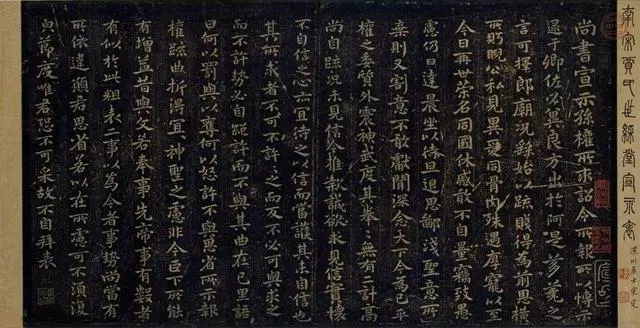 南宋賈氏世綵堂宣示表
尚書宣示孫權所求詔令所報所以博示
逮于卿佐必冀良方出於阿是芻蕘之
言可擇郎廟況繇始以疏賤得為前恩橫
所眄睨公私見異愛同骨肉殊遇厚寵以至
今日再世榮名同國休慼敢不自量竊致愚
慮仍日達晨坐以待旦退思鄙淺聖意所
棄則又割意不敢獻聞深念天下今為已平
權之委質外震神武度其拳〻無有二計高
尚自疏況未見信今推款誠欲求見信實懷
不自信之心亦宜待之以信而當護其未自信也
其所求者不可不許許之而反不必可與求之
而不許勢必自絕許而不與其曲在己里語
曰何以罰與以奪何以怒許不與思省所示報
權疏曲折得宜神聖之慮非今臣下所能
有增益昔與文若奉事先帝事有數者
有似於此粗表二事以為今者事勢尚當有
所依違願君思省若以在所慮可不須復
皃節度唯君恐不可采故不自拜表